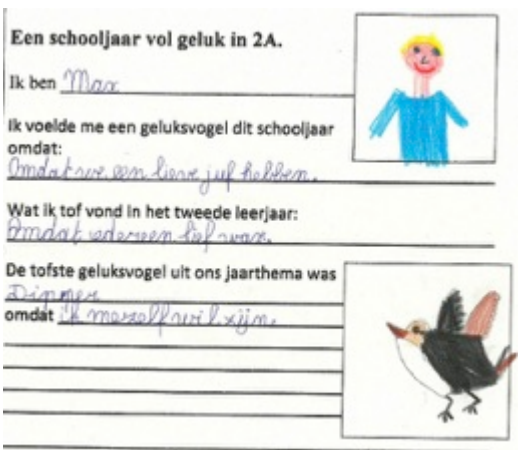 Een schooljaar vol geluk in 2A.
Ik ben Max
Ik voelde me een geluksvogel dit schooljaar
omdat:
Omdat we een lieve juf hebben.
Wat ik tof vond in het tweede leerjaar:
Omdat iedereen lief was.
De tofste geluksvogel uit ons jaarthema was
Dipper
omdat ik mezelf wil zijn.